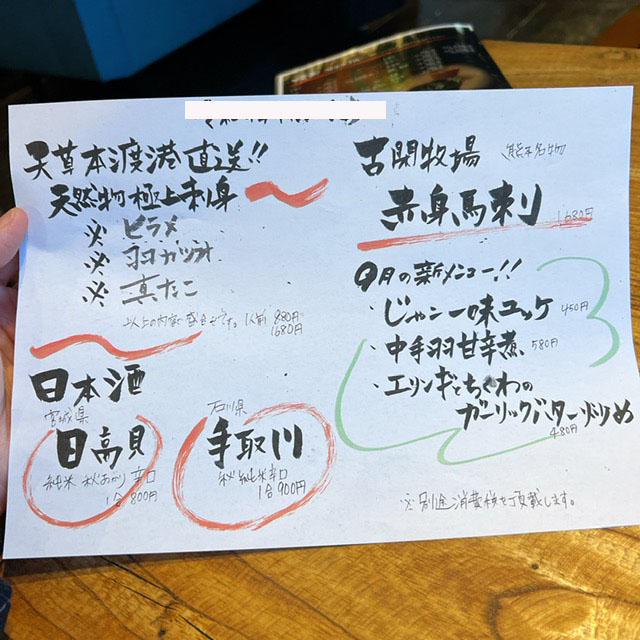 天草本渡港直送!!
天然物極上刺身
※ ヒラメ
※ ヨコカツオ
※ 真たこ
以上の内容で盛合せです。1人前 880円
1680円
日本酒
宮城県
日高見
純米 秋あがり 辛口
1合 800円
石川県
手取川
秋 純米辛口
1合 900円
古閑牧場
熊本名物
赤身馬刺
1680円
9月の新メニュー!!
・じゃこ一味ユッケ 450円
・中手羽甘辛煮 580円
・エリンギとちくわの
ガーリックバター炒め
480円
※別途消費税を頂戴します。